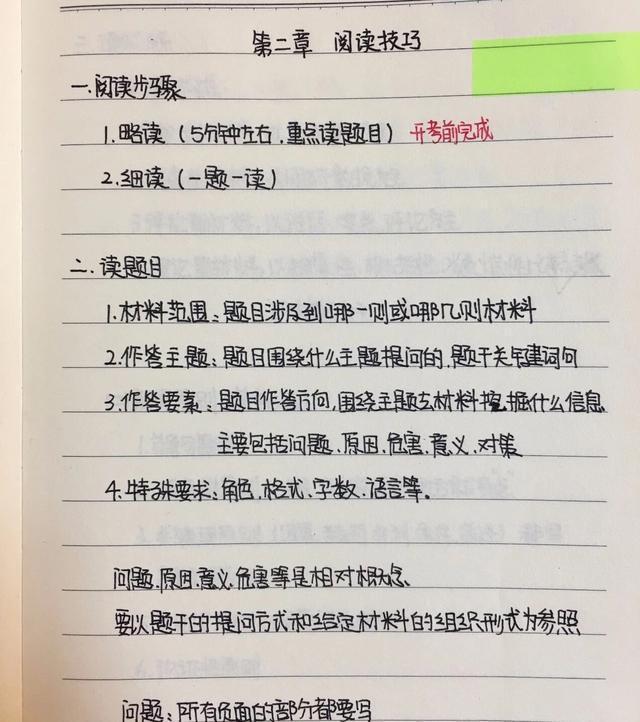 第二章 阅读技巧
一.阅读步骤
1.略读（5分钟左右,重点读题目）开考前完成
2.细读（一题一读）
二.读题目
1.材料范围：题目涉及到哪一则或哪几则材料
2.作答主题：题目围绕什么主题提问的,题干关键词句
3.作答要素：题目作答方向,围绕主题去材料挖掘什么信息
主要包括问题、原因、危害、意义、对策
4.特殊要求：角色、格式、字数、语言等。
问题、原因、意义、危害等是相对概念
要以题干的提问方式和给定材料的组织形式为参照
问题：所有负面的部分都要写